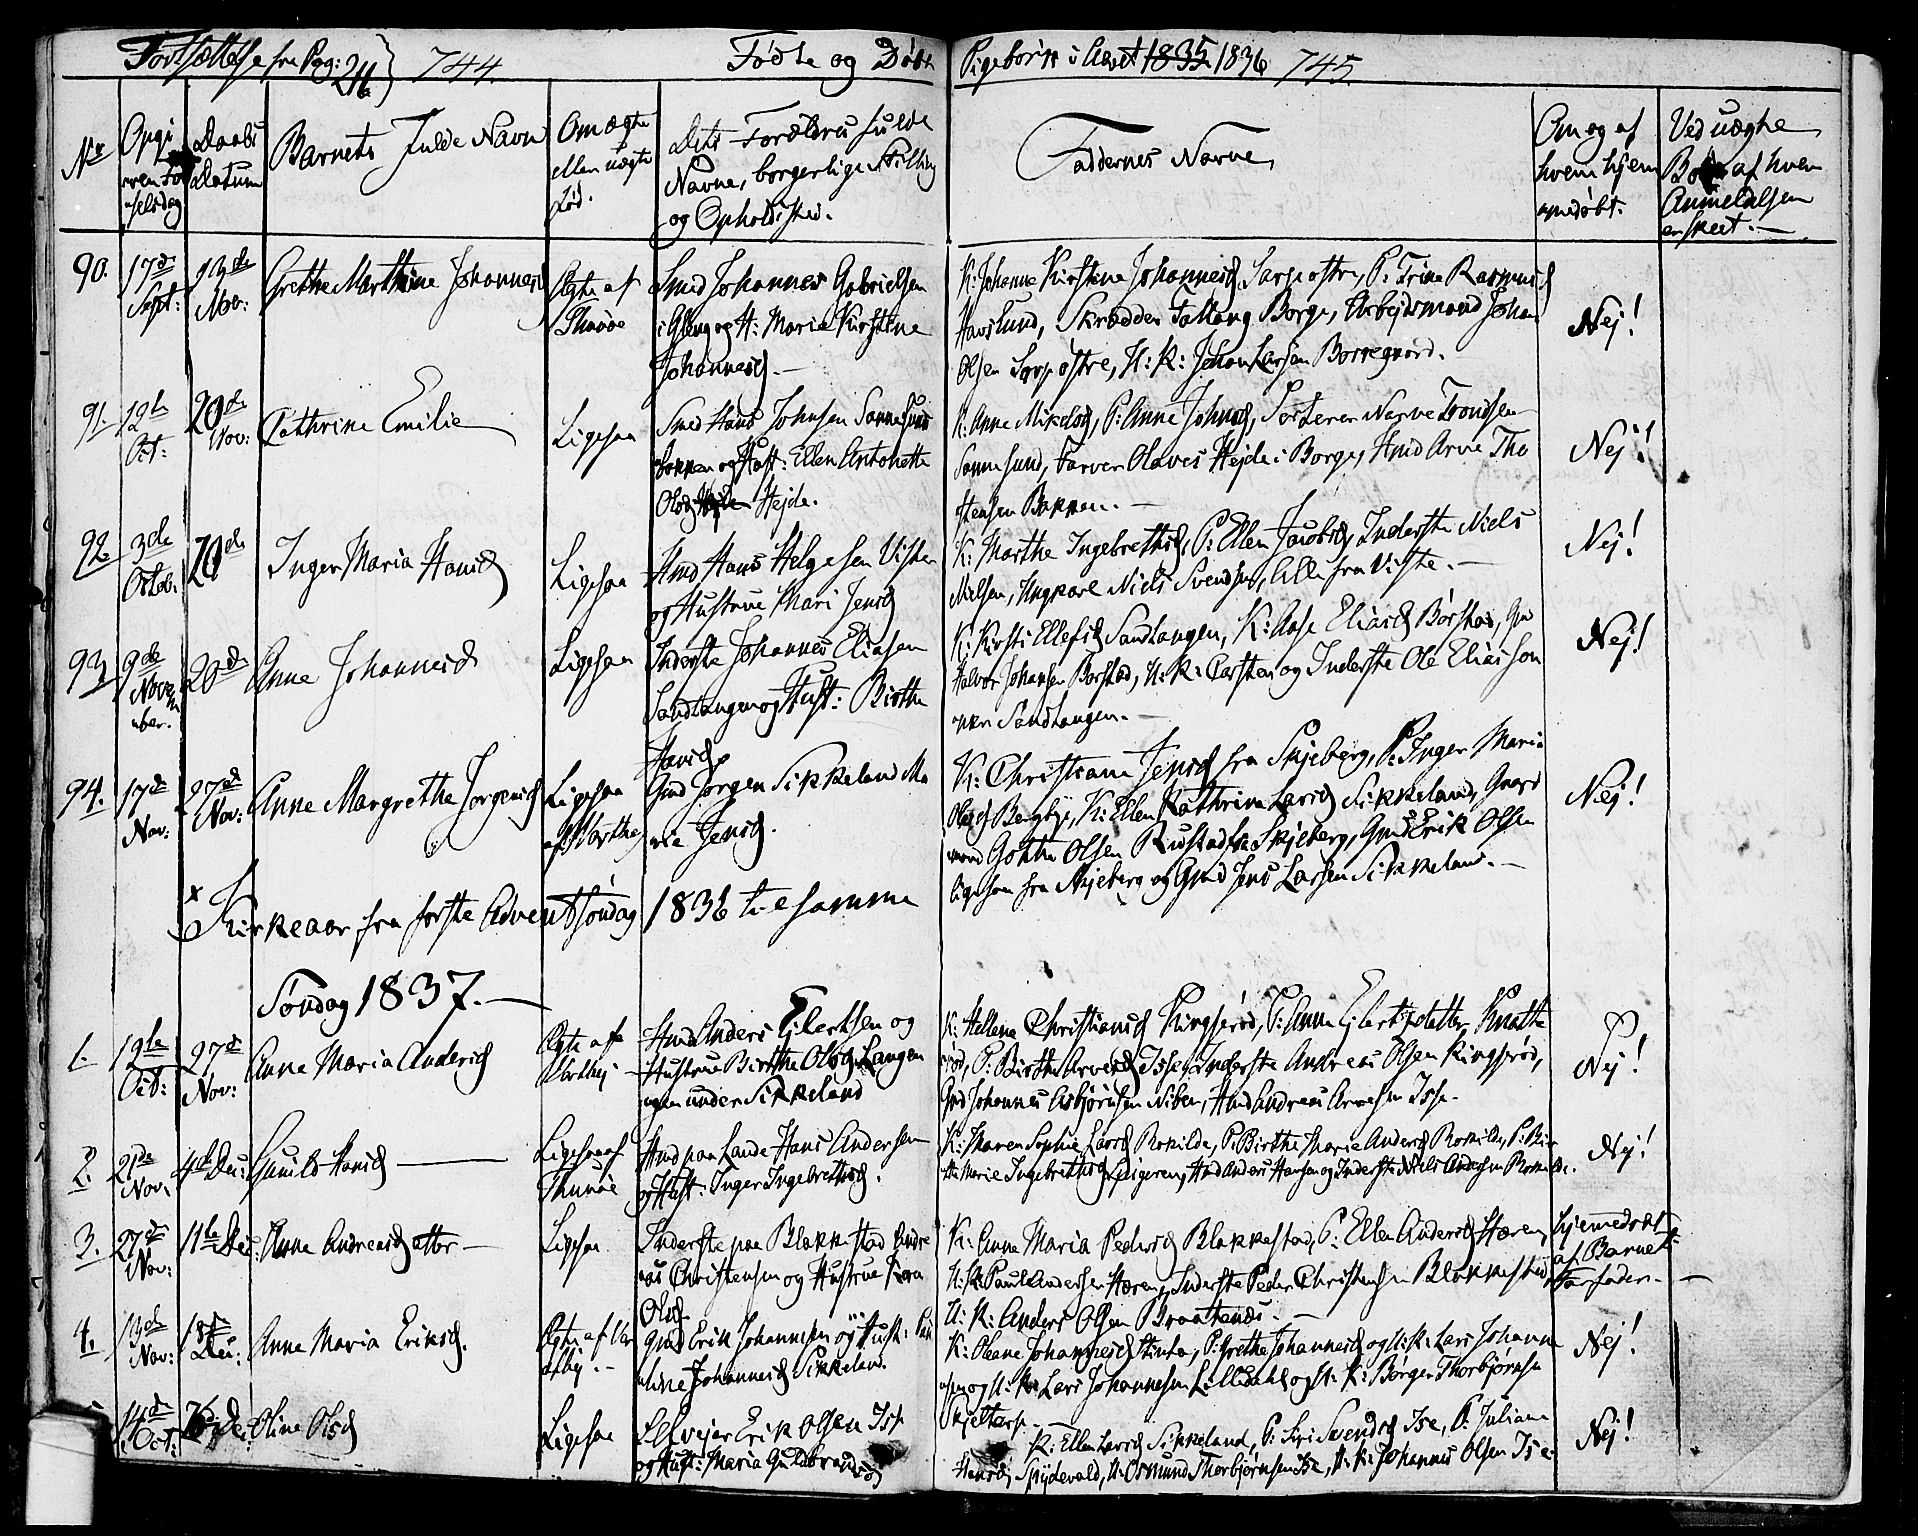 Fortsættelse fra Pag: 216) 744. Fødte og Døbte Pigebørn i Aaret 1835 1836 745.
No
Daabs Datum
Barnets Fulde Navn
Om ægte eller uægte Fød.
Dets Forældres fulde Navne, borgerlige Stilling og Opholdssted.
Faddernes Navne
Om og af hvem hjemmedøbt.
Ved uægte Børn af hvem Anmeldelsen er skeet. —
90. 17de Sept: 13de Nov:
Grethe Marthine Johannesd
Ægte af
Smed Johannes Gabrielsen
i Gleng og H: Maria Kirstine
Johannesd. —
K: Johanne Kirstine Johannesd Sarpostre, P: Trine Rasmusd
Havslund, Skrædder Borge, Arbejdsmand Johan
Olsen Sarpostre, U: K: Johan Larsen Borregaard.
Nej!
91. 12te Oct: 20de Nov:
Cathrine Emilie
Ligesaa
Smed Hans Johnsen Sannesund
Bakken og Hust: Ellen Antonette
Olsd Hejde.
K: Anne Mikelsd, P: Anne Johnsd, Sorterer Narve Trondsen
Sannesund, Farver Olaves Hejde i Borge, Hmd Arve Tho
stensen Bakken. —
Nej!
92. 3de Octob: 20de
Inger Maria Hansd
Ligesaa
Hmd Hans Helgesen Viste
og Hustrue Mari Jensd
K: Marthe Ingebrethsd, P: Ellen Jacobsd, Inderste Niels
Nielsen, Ungkarl Niels Svendsen, Alle fra Viste. —
Nej!
93. 9de November. 20de
Anne Johannesd
Ligesaa
Inderste Johannes Eliasen
Sandtangen og Hust: Birthe
Hansd
K: Kirsti Ellefsd Sandtangen, K: Aase Eliasd Børstad, Gmd
Halvor Johansen Borstad, U: K: Carsten og Inderste Ole Eliasson
Sandtangen. —
Nej!
94. 17de Nov: 27de Nov:
Anne Margrethe Jorgensd
Ligesaa
Gmd Jorgen Sikkeland Ma
rie Jensd.
K: Christiane Jensd fra Skjeberg, P: Inger Maria
Olesd Bergbye, K: Ellen Kathrine Larsd Sikkeland, Gaard
mand Olsen Rustad fra Skjeberg, Gmd Erik Olsen
ligesom fra Skjeberg og Gmd Jens Larsen Sikkeland. —
Nej!
x Kirkeaar fra første Adventsøndag 1836 til samme
Søndag 1837. —
1. 19te Oct: 27de Nov:
Anne Maria Andersd
Ægte af
Hmd Anders Ejlertsen og
Hustrue Birthe Olsd Langen
under Sikkeland
K: Hellene Christiansd Kingsrød, P: Anne Ejlertsdatter Knatte
rød, P: Birthe Arvesd Isse, Inderste Andreas Olsen Kingsrød,
Gmd Johannes Asbjørnsen Niber, Hmd Andreas Arnesen Isse.
Nej!
2. 21de Nov. 4de Dec:
Gunild Hansd —
Ligesaa af Thunøe
Hmd paa Lande Hans Andersen
og Hust: Inger Ingebrethsd.
K: Maren Sophie Larsd Rokilde, P: Birthe Marie Andersd Rokilde, P: Bir
the Marie Ingebrethsd, Hmd Anders Hansen og Inderste Niels Andersen Rokilde.
Nej!
3. 27de Nov: 11te Dec:
Anne Andreasdatter —
Ligesaa
Inderste paa Blakkestad Andre
as Christensen og Hustrue Kara
Olsd
K: Anne Maria Pedersd Blakkestad, P: Ellen Andersd Hæren,
U: K: Paul Andersen Hæren, Inderste Peder Christensen Blakkestad,
U: K: Anders Olsen Braatenes. —
hjemmedøbt af Barnets Farfader. —
4. 13de Nov: 18de Dec:
Anne Maria Eriksd.
Ægte af
Gmd Erik Johannesen og Hust: Pau
line Johannesd Sikkeland.
K: Oleane Johannesd, P: Grethe Johannesd og U: K: Lars Johann
esen og U: K: Lars Johannesen Lilledahl og U: K: Børger Thorbjørnsen
Skjeltorp. —
Nej!
14de Oct: 26 Dec:
Oline Olsd
Ligesaa
Erik Olsen Isse
og Hust: Maria Guldbrandsd
K: Ellen Larsd Sikkeland, P: Siri Svendsd Ise, P: Juliane
Hansd Spydevold, U: Osmund Thorbjørnsen Ise, U: K: Johannes Olsen Ise.
Nej!